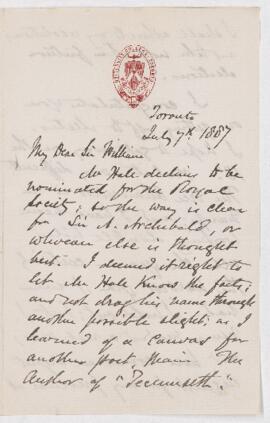 Toronto
July 7th 1887
My Dear Sir William
Mr Hale declines to be
nominated for the Royal
Society; so the way is clear
for Sir A. Archibald, or
whoever else is thought
best. I deemed it right to
let Mr Hale know the facts;
and not drag his name through
another possible slight; as I
learned of a canvas for
another poet, Mair. The
Author of "Tecumseth".